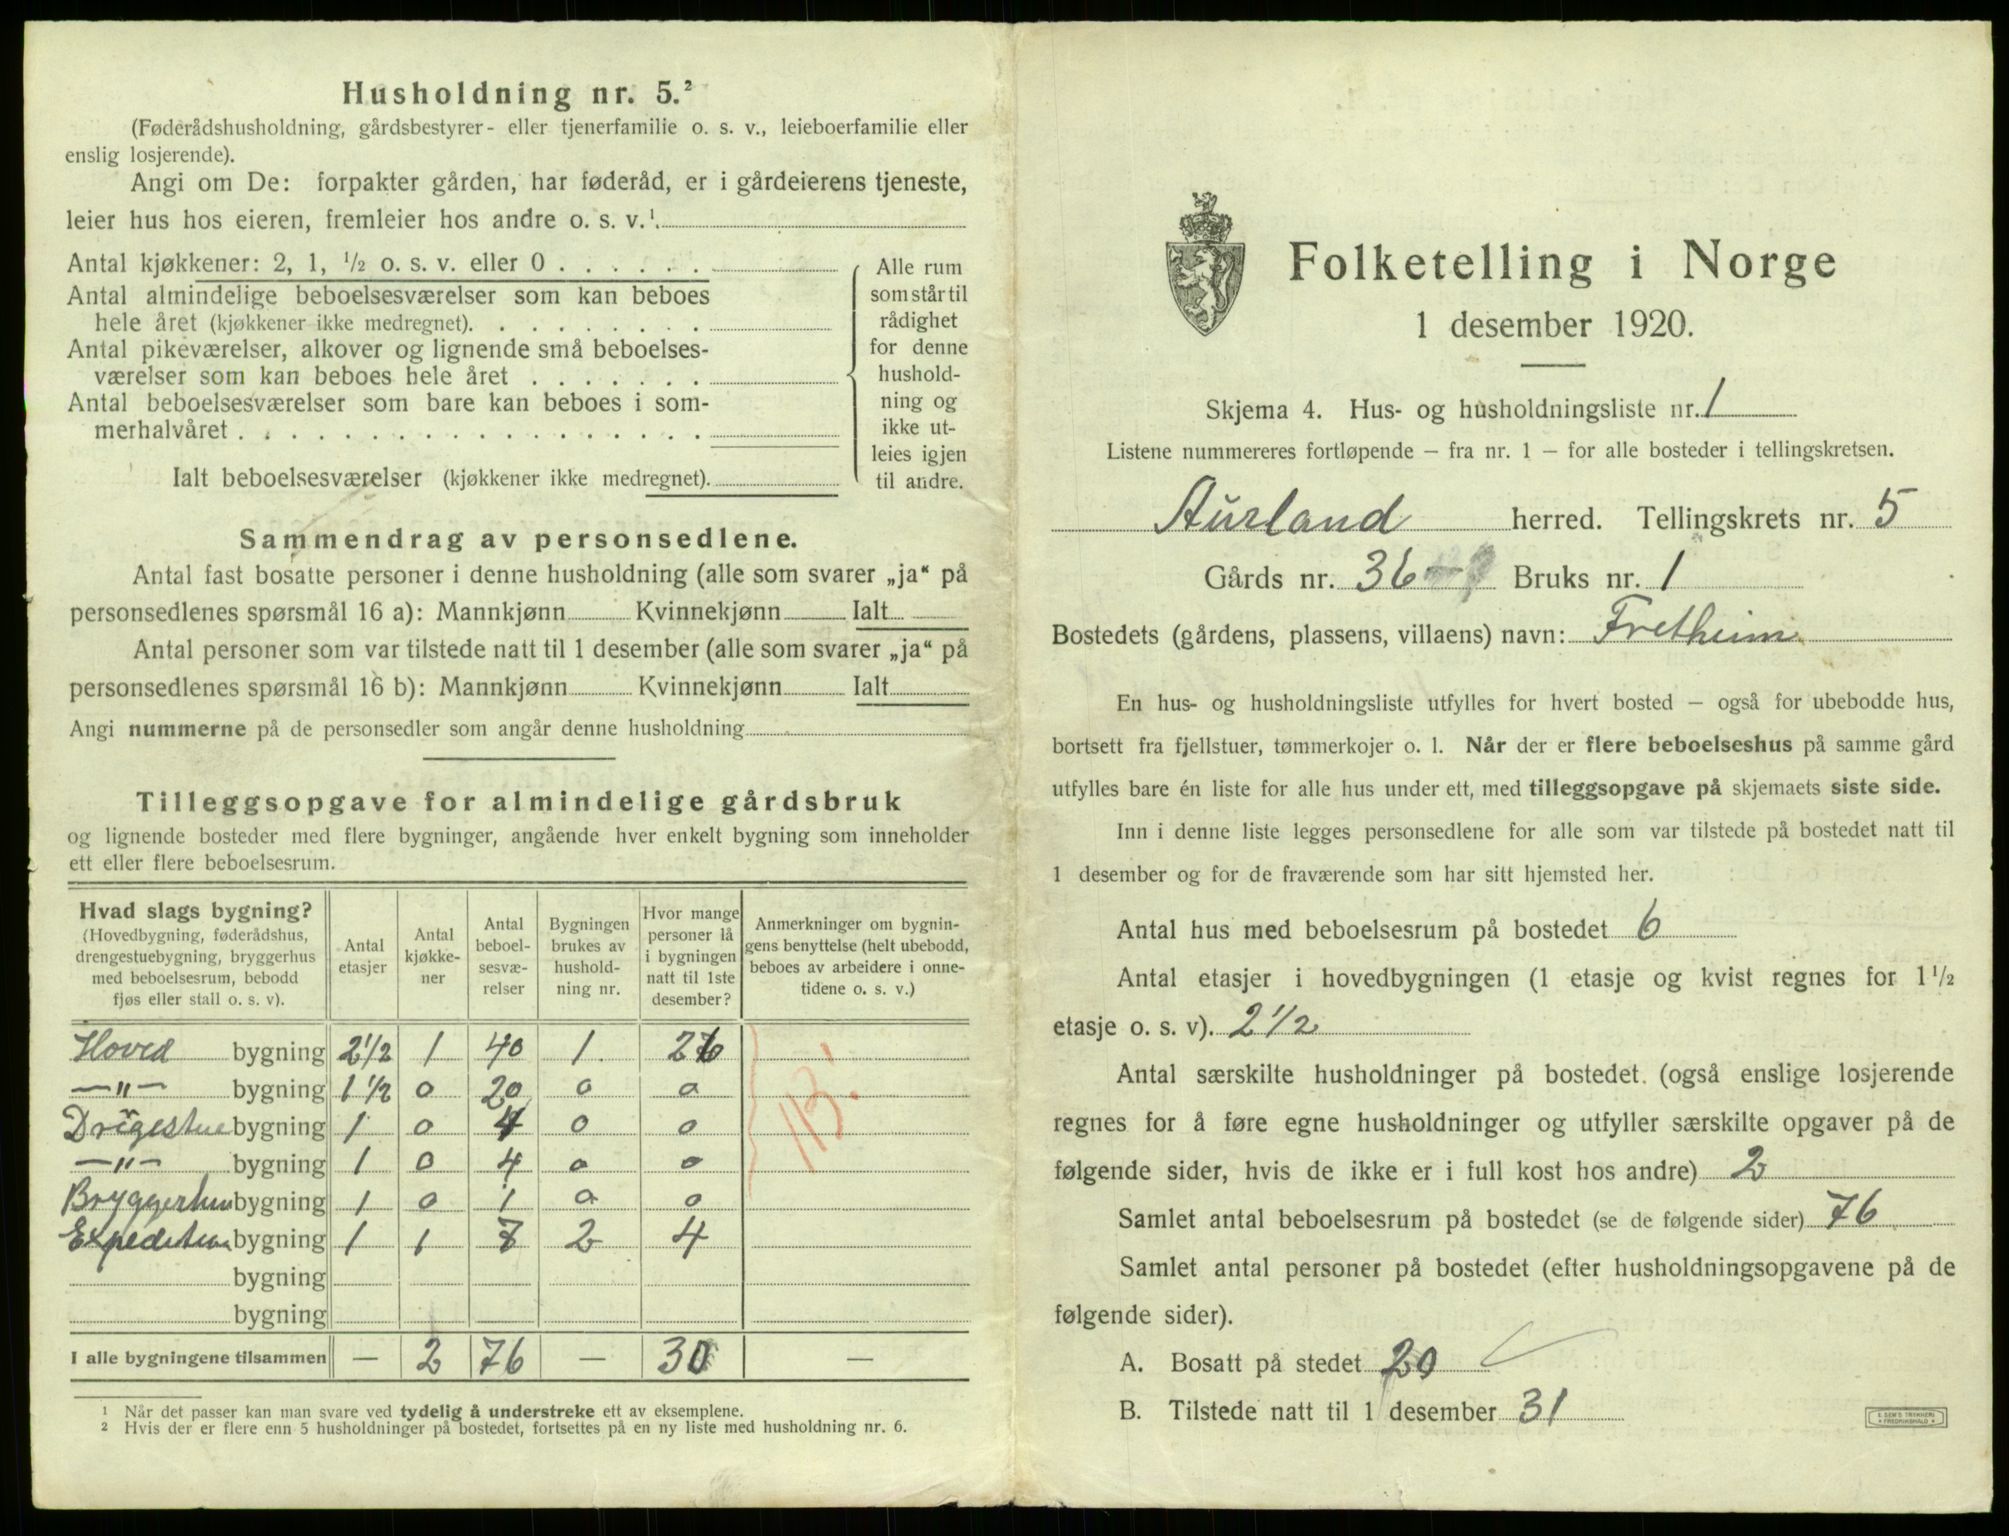 Husholdning nr. 5.²
(Føderådshusholdning, gårdsbestyrer- eller tjenerfamilie o. s. v., leieboerfamilie eller
enslig losjerende).
Angi om De: forpakter gården, har føderåd, er i gårdeierens tjeneste,
leier hus hos eieren, fremleier hos andre o. s. v.¹
Antal kjøkkener: 2, 1, ½ o. s. v. eller 0 . . . . . .
Antal almindelige beboelsesværelser som kan beboes
hele året (kjøkkener ikke medregnet). . . . . . . . .
Antal pikeværelser, alkover og lignende små beboelses-
værelser som kan beboes hele året . . . . . . .
Antal beboelsesværelser som bare kan beboes i som-
merhalvåret . . . . . . . . . . . . . . . . . .
Ialt beboelsesværelser (kjøkkener ikke medregnet).
Alle rum
som står til
rådighet
for denne
hushold-
ning og
ikke ut-
leies igjen
til andre.
Sammendrag av personsedlene.
Antal fast bosatte personer i denne husholdning (alle som svarer „ja“ på
personsedlenes spørsmål 16 a): Mannkjønn Kvinnekjønn Ialt
Antal personer som var tilstede natt til 1 desember (alle som svarer „ja“ på
personsedlenes spørsmål 16 b): Mannkjønn Kvinnekjønn Ialt
Angi nummerne på de personsedler som angår denne husholdning
Tilleggsopgave for almindelige gårdsbruk
og lignende bosteder med flere bygninger, angående hver enkelt bygning som inneholder
ett eller flere beboelsesrum.
Hvad slags bygning?
(Hovedbygning, føderådshus,
drengestuebygning, bryggerhus
med beboelsesrum, bebodd
fjøs eller stall o. s. v).
Antal
etasjer
Antal
kjøkke-
ner
Antal
beboel-
sesvæ-
relser
Bygningen
brukes av
hushold-
ning nr.
Hvor mange
personer lå
i bygningen
natt til 1ste
desember?
Anmerkninger om bygnin-
gens benyttelse (helt ubebodd,
beboes av arbeidere i onne-
tidene o. s. v.)
Hoved bygning 2 1/2 1 40 1. 26
—"— bygning 1 1/2 0 20 0 0
bygning 1 0 4 0 0
—"— bygning 1 0 4 0 0
Bryggerhus bygning 1 0 1 0 0
bygning 1 1 7 2 4
bygning
bygning
I alle bygningene tilsammen — 2 76 — 30 —
¹ Når det passer kan man svare ved tydelig å understreke ett av eksemplene.
² Hvis der er flere enn 5 husholdninger på bostedet, fortsettes på en ny liste med husholdning nr. 6.
Folketelling i Norge
1 desember 1920.
Skjema 4. Hus- og husholdningsliste nr. 1
Listene nummereres fortløpende – fra nr. 1 – for alle bosteder i tellingskretsen.
Aurland herred. Tellingskrets nr. 5
Gårds nr. 36 Bruks nr. 1
Bostedets (gårdens, plassens, villaens) navn: Fretheim
En hus- og husholdningsliste utfylles for hvert bosted – også for ubebodde hus,
bortsett fra fjellstuer, tømmerkojer o. l. Når der er flere beboelseshus på samme gård
utfylles bare én liste for alle hus under ett, med tilleggsopgave på skjemaets siste side.
Inn i denne liste legges personsedlene for alle som var tilstede på bostedet natt til
1 desember og for de fraværende som har sitt hjemsted her.
Antal hus med beboelsesrum på bostedet 6
Antal etasjer i hovedbygningen (1 etasje og kvist regnes for 1½
etasje o. s. v). 2 1/2
Antal særskilte husholdninger på bostedet (også enslige losjerende
regnes for å føre egne husholdninger og utfyller særskilte opgaver på de
følgende sider, hvis de ikke er i full kost hos andre) 2
Samlet antal beboelsesrum på bostedet (se de følgende sider) 76
Samlet antal personer på bostedet (efter husholdningsopgavene på de
følgende sider).
A. Bosatt på stedet 20
B. Tilstede natt til 1 desember 31
E. SEM'S TRYKKERI
FREDRIKSHALD